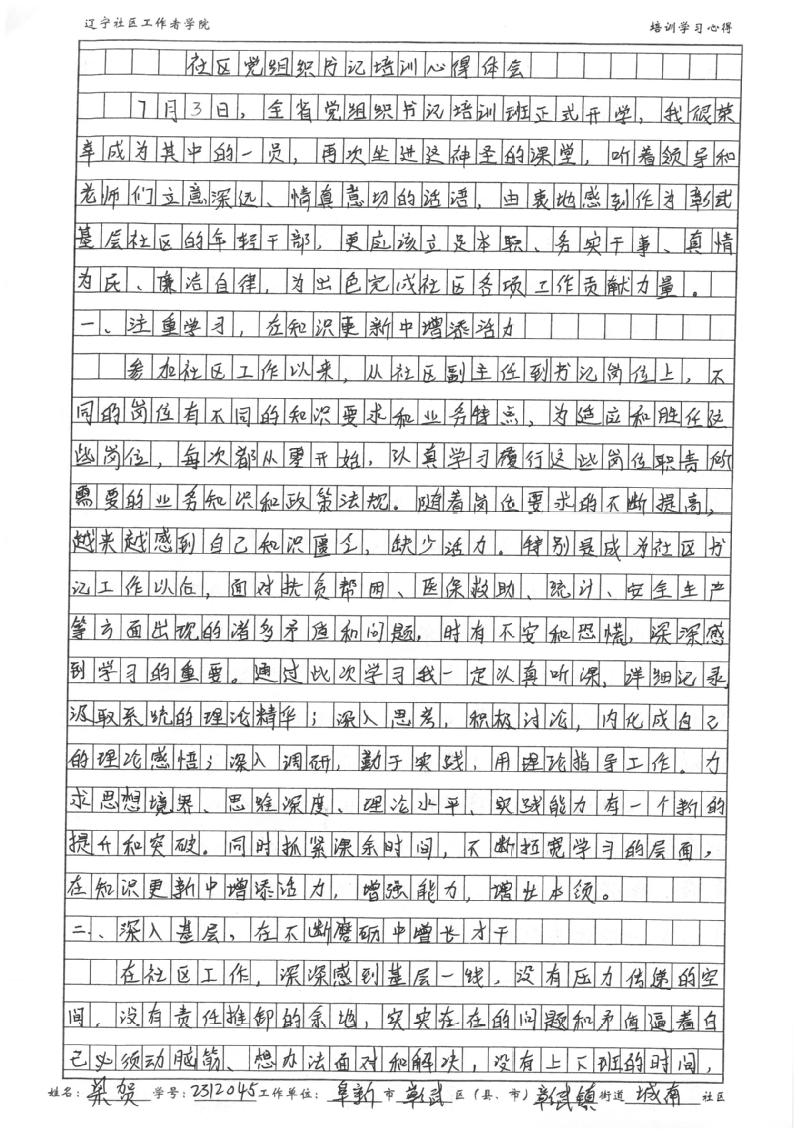 辽宁社区工作者学院 培训学习心得
社区党组织书记培训心得体会
7月3日，全省党组织书记培训班正式开学，我很荣
幸成为其中的一员，再次坐进这神圣的课堂，听着领导和
老师们立意深远、情真意切的话语，由衷地感到作为彰武
基层社区的年轻干部，更应该立足本职、务实干事、真情
为民、廉洁自律，为出色完成社区各项工作贡献力量。
一、注重学习，在知识更新中增添活力
参加社区工作以来，从社区副主任到书记岗位上，不
同的岗位有不同的知识要求和业务特点，为适应和胜任这
些岗位，每次都从零开始，认真学习履行这些岗位职责所
需要的业务知识和政策法规。随着岗位要求的不断提高，
越来越感到自己知识匮乏，缺少活力。特别是成为社区书
记工作以后，面对扶贫帮困、医保救助、统计、安全生产
等方面出现的诸多矛盾和问题，时有不安和恐慌，深深感
到学习的重要。通过此次学习我一定认真听课，详细记录，
汲取系统的理论精华；深入思考，积极讨论，内化成自己
的理论感悟；深入调研，勤于实践，用理论指导工作。力
求思想境界、思维深度、理论水平、实践能力有一个新的
提升和突破。同时抓紧课余时间，不断拓宽学习的层面，
在知识更新中增添活力，增强能力，增长本领。
二、深入基层，在不断磨砺中增长才干
在社区工作，深深感到基层一线，没有压力传递的空
间，没有责任推卸的余地，实实在在的问题和矛盾逼着自
己必须动脑筋、想办法面对和解决，没有上下班的时间，
姓名：梁贺 学号：2312045 工作单位：阜新市彰武区（县、市）彰武镇街道城南社区